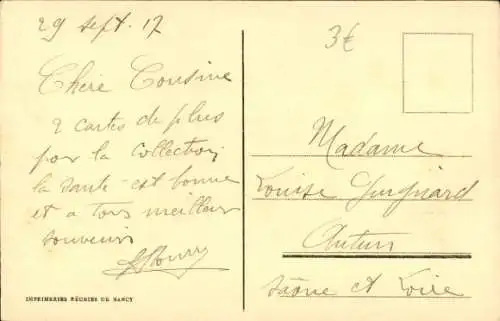 29 Sept. 17
3€
Chère Cousine
2 cartes de plus
por la Collection
la santé est bonne
et a tous meilleur
souvenir
IMPRIMERIES RÉUNIES DE NANCY
Madame
Louise Guignard
Autun
Saône et Loire